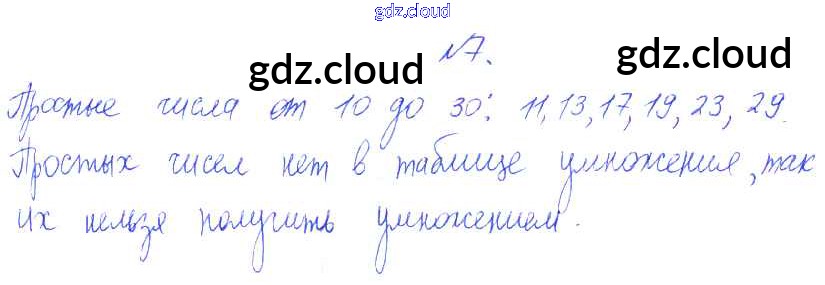 gdz.cloud
№7.
gdz.cloud gdz.cloud
Простые числа от 10 до 30: 11, 13, 17, 19, 23, 29.
Простых чисел нет в таблице умножения, так
их нельзя получить умножением.